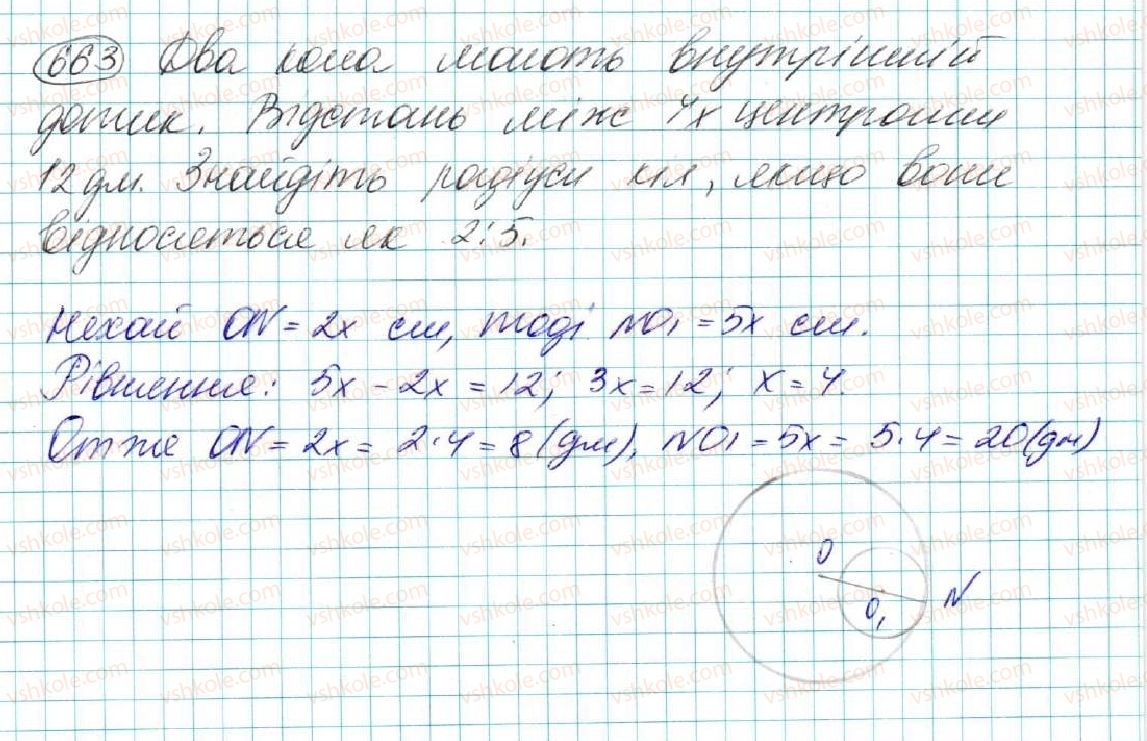 663 Два кола мають внутрішній
дотик. Відстань між їх центрами
12 дм. Знайдіть радіуси кіл, якщо вони
відносяться як 2:5.
Нехай ON = 2x см, тоді NO₁ = 5x см.
Рівняння: 5x - 2x = 12; 3x = 12; x = 4.
Отже ON = 2x = 2·4 = 8 (дм), NO₁ = 5x = 5·4 = 20 (дм)
O
O₁
N